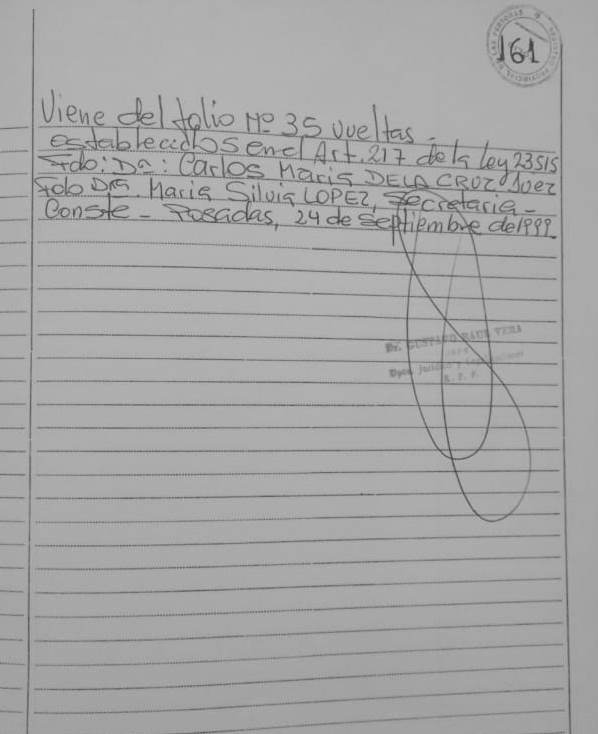 161
Viene del folio Nº 35 vueltas.
establecidos en el Art. 217 de la Ley 23515
Fdo: Dr: Carlos Maria DE LA CRUZ Juez
Fdo Dra. Maria Silvia LOPEZ, Secretaria -
Conste - Posadas, 24 de septiembre de 1999.
Dr. GUSTAVO RAUL VERA